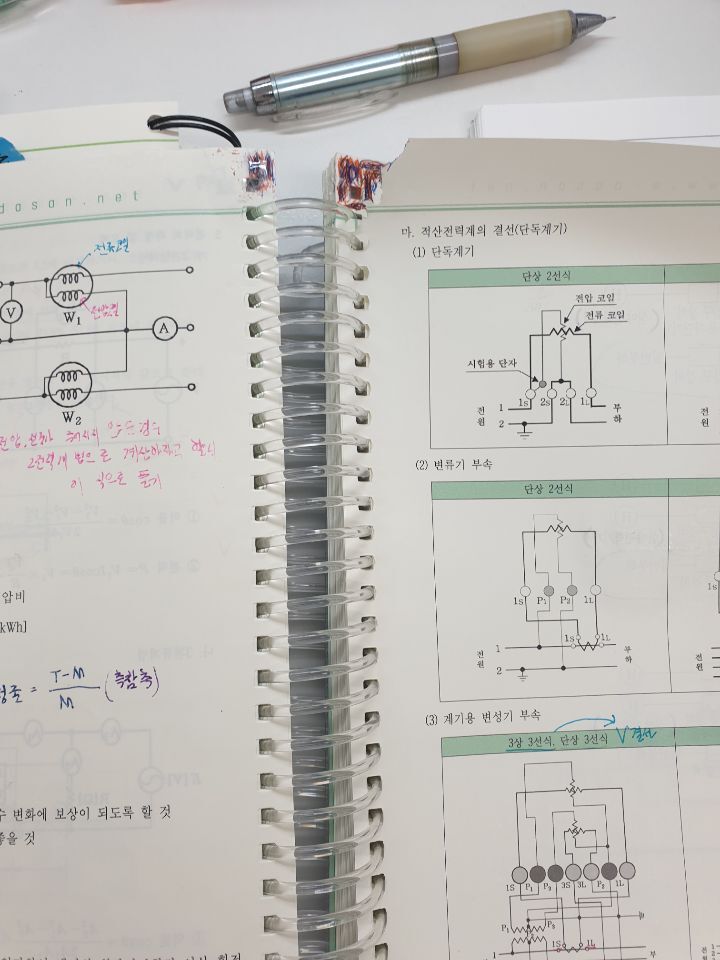 dosan.net
전류코일
V
전압코일
W₁
A
W₂
전압, 전류가 주어지지 않은경우
2전력계 법으로 계산하라고 할시
이 식으로 풀기
압비
kWh]
정률 = T-M / M (측참측)
수 변화에 보상이 되도록 할 것
좋을 것
마. 적산전력계의 결선(단독계기)
(1) 단독계기
단상 2선식
전압 코일
전류 코일
시험용 단자
1S 2S 2L 1L
전원 1 2 부하
전
(2) 변류기 부속
단상 2선식
1S P₁ P₂ 1L
1S 1L
전원 1 2 부하
전원
(3) 계기용 변성기 부속
3상 3선식, 단상 3선식 V결선
1S P₁ P₃ 3S 3L P₂ 1L
P₁ P₃
1S 1L
1 부
전